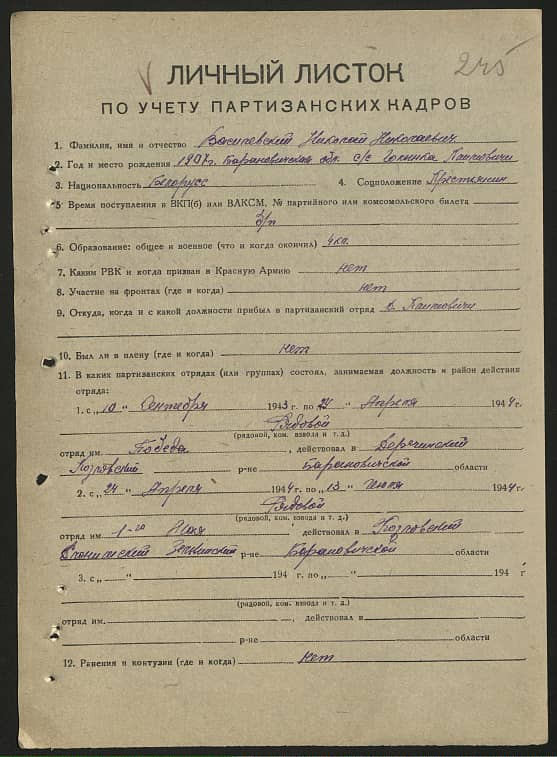 245
ЛИЧНЫЙ ЛИСТОК
ПО УЧЕТУ ПАРТИЗАНСКИХ КАДРОВ
1. Фамилия, имя и отчество Василевский Николай Николаевич
2. Год и место рождения 1907г. Барановичская обл. с/с
3. Национальность Белорусс 4. Соцположение Крестьянин
5 Время поступления в ВКП(б) или ВЛКСМ, № партийного или комсомольского билета
б/п
6. Образование: общее и военное (что и когда окончил) 4 кл.
7. Каким РВК и когда призван в Красную Армию нет
8. Участие на фронтах (где и когда) нет
9. Откуда, когда и с какой должности прибыл в партизанский отряд д.
10. Был ли в плену (где и когда) нет
11. В каких партизанских отрядах (или группах) состоял, занимаемая должность и район действия
отряда:
1. с „10 " Сентября 1943 г. по „24 " Апреля 1944 г.
Рядовой
(рядовой, ком. взвода и т. д.)
отряд им. Победа , действовал в
Козловский р-не Барановичской области
2. с „24 " Апреля 1944 г. по „13 " Июля 1944 г.
Рядовой
(рядовой, ком. взвода и т. д.)
отряд им. 1-го Мая действовал в Козловский
Слонимский р-не Барановичской области
3. с „ " 194 г. по „ " 194 г
(рядовой, ком. взвода и т. д.)
отряд им. , действовал в
р-не области
12. Ранения и контузии (где и когда) нет